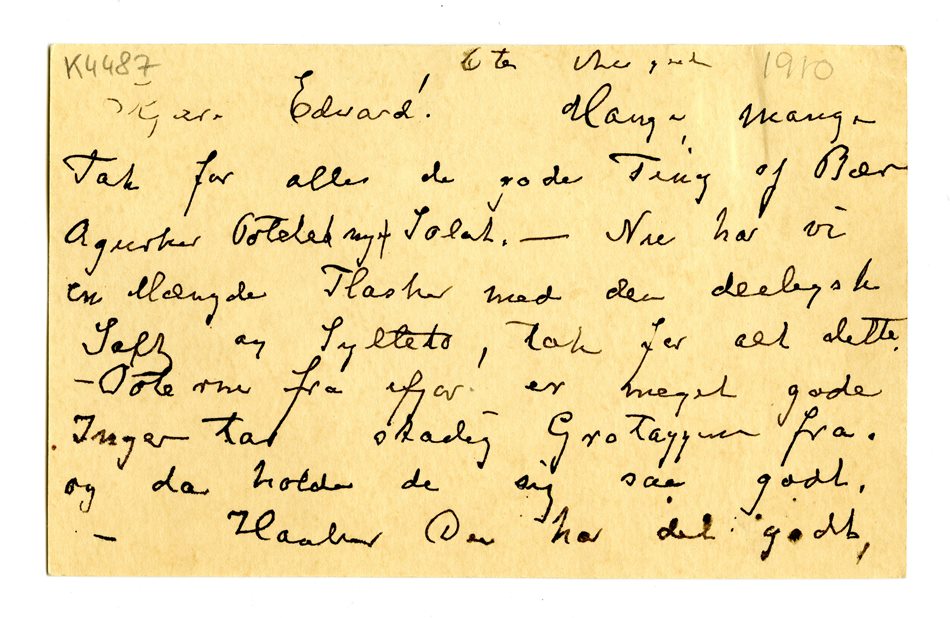 K4487 6te August 1910
Kjære Edvard! Mange, mange
Tak for alle de gode Ting af Bær
Agurker Poteter nyt Salat. — Nu har vi
en Mængde Flasker med den deilegste
Saft og Syltetø, tak for alt dette.
— Poterne fra ifjor er meget gode
Inger tar stadig Grotappene fra.
og da holder de sig saa godt.
— Haaber Du har det godt,